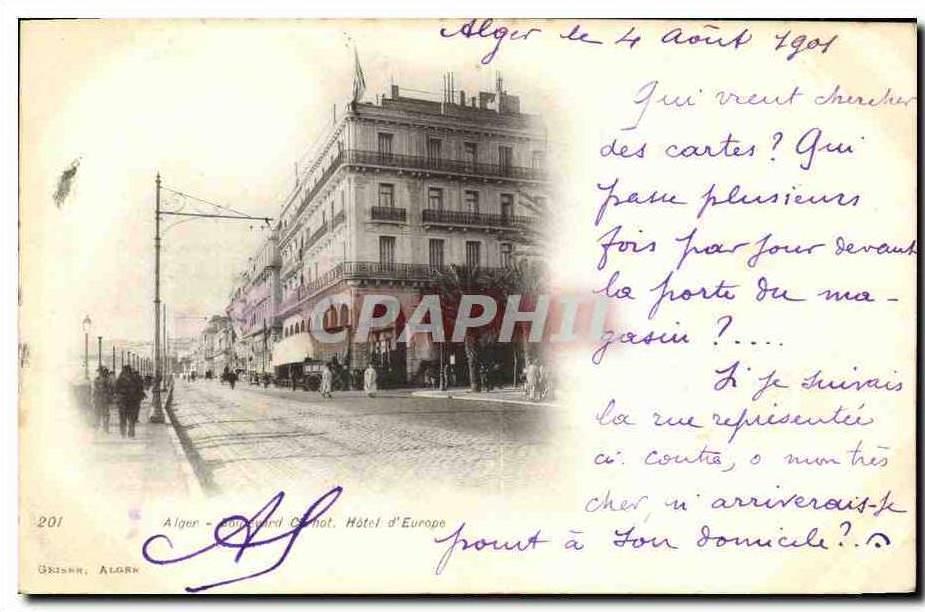 Alger le 4 Août 1901
Qui vient chercher
des cartes ? Qui
passe plusieurs
fois par jour devant
la porte du ma-
gasin ? .....
Si je suivais
la rue représentée
ci. contre, o mon très
cher, n'arriverais-je
point à Son domicile ? .
CPARAMA
201
Alger - Boulevard Carnot. Hôtel d'Europe
GEISER, ALGER